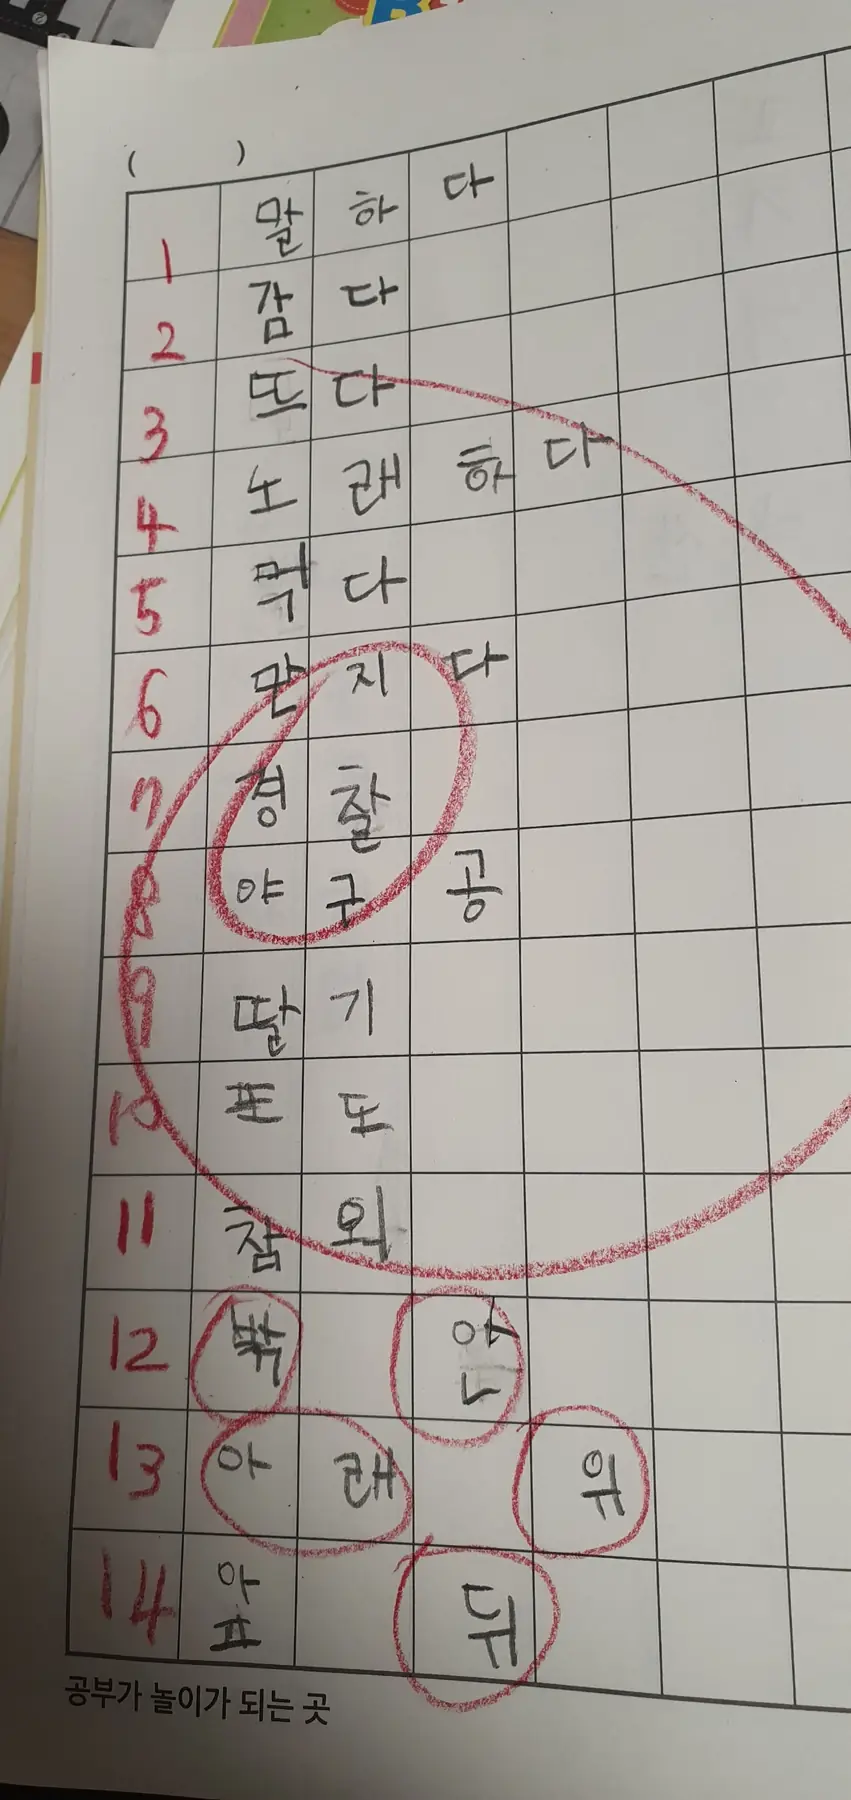 ( )
1 말하다
2 감다
3 뜨다
4 노래하다
5 먹다
6 만지다
7 경찰
8 야구공
9 딸기
10 포도
11 참외
12 밖 안
13 아래 위
14 앞 뒤
공부가 놀이가 되는 곳